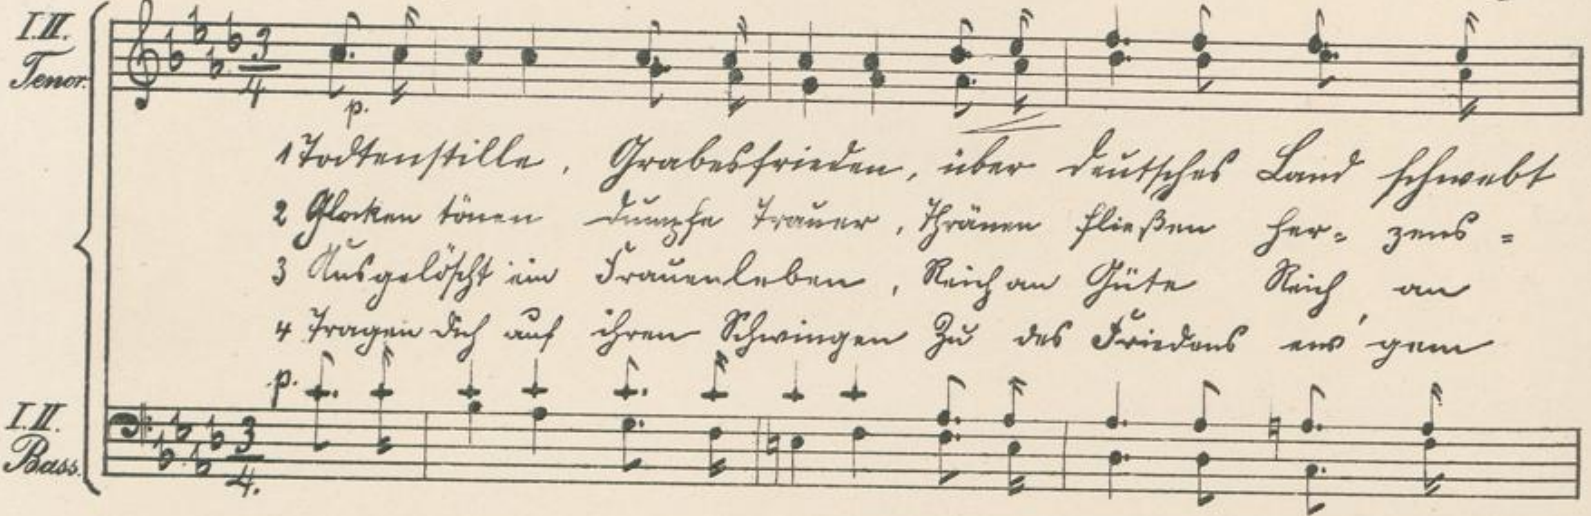 I.II.
Tenor.
3
4
p.
1 Todtenstille, Grabesfrieden, über deutsches Land schwebt
2 Glocken tönen dumpfe Trauer, Thränen fließen her- zens-
3 Ausgelöscht ein Frauenleben, Reich an Güte Reich an
4 Tragen dich auf ihren Schwingen Zu des Friedens ew'gem
p.
I.II.
Bass.
3
4.